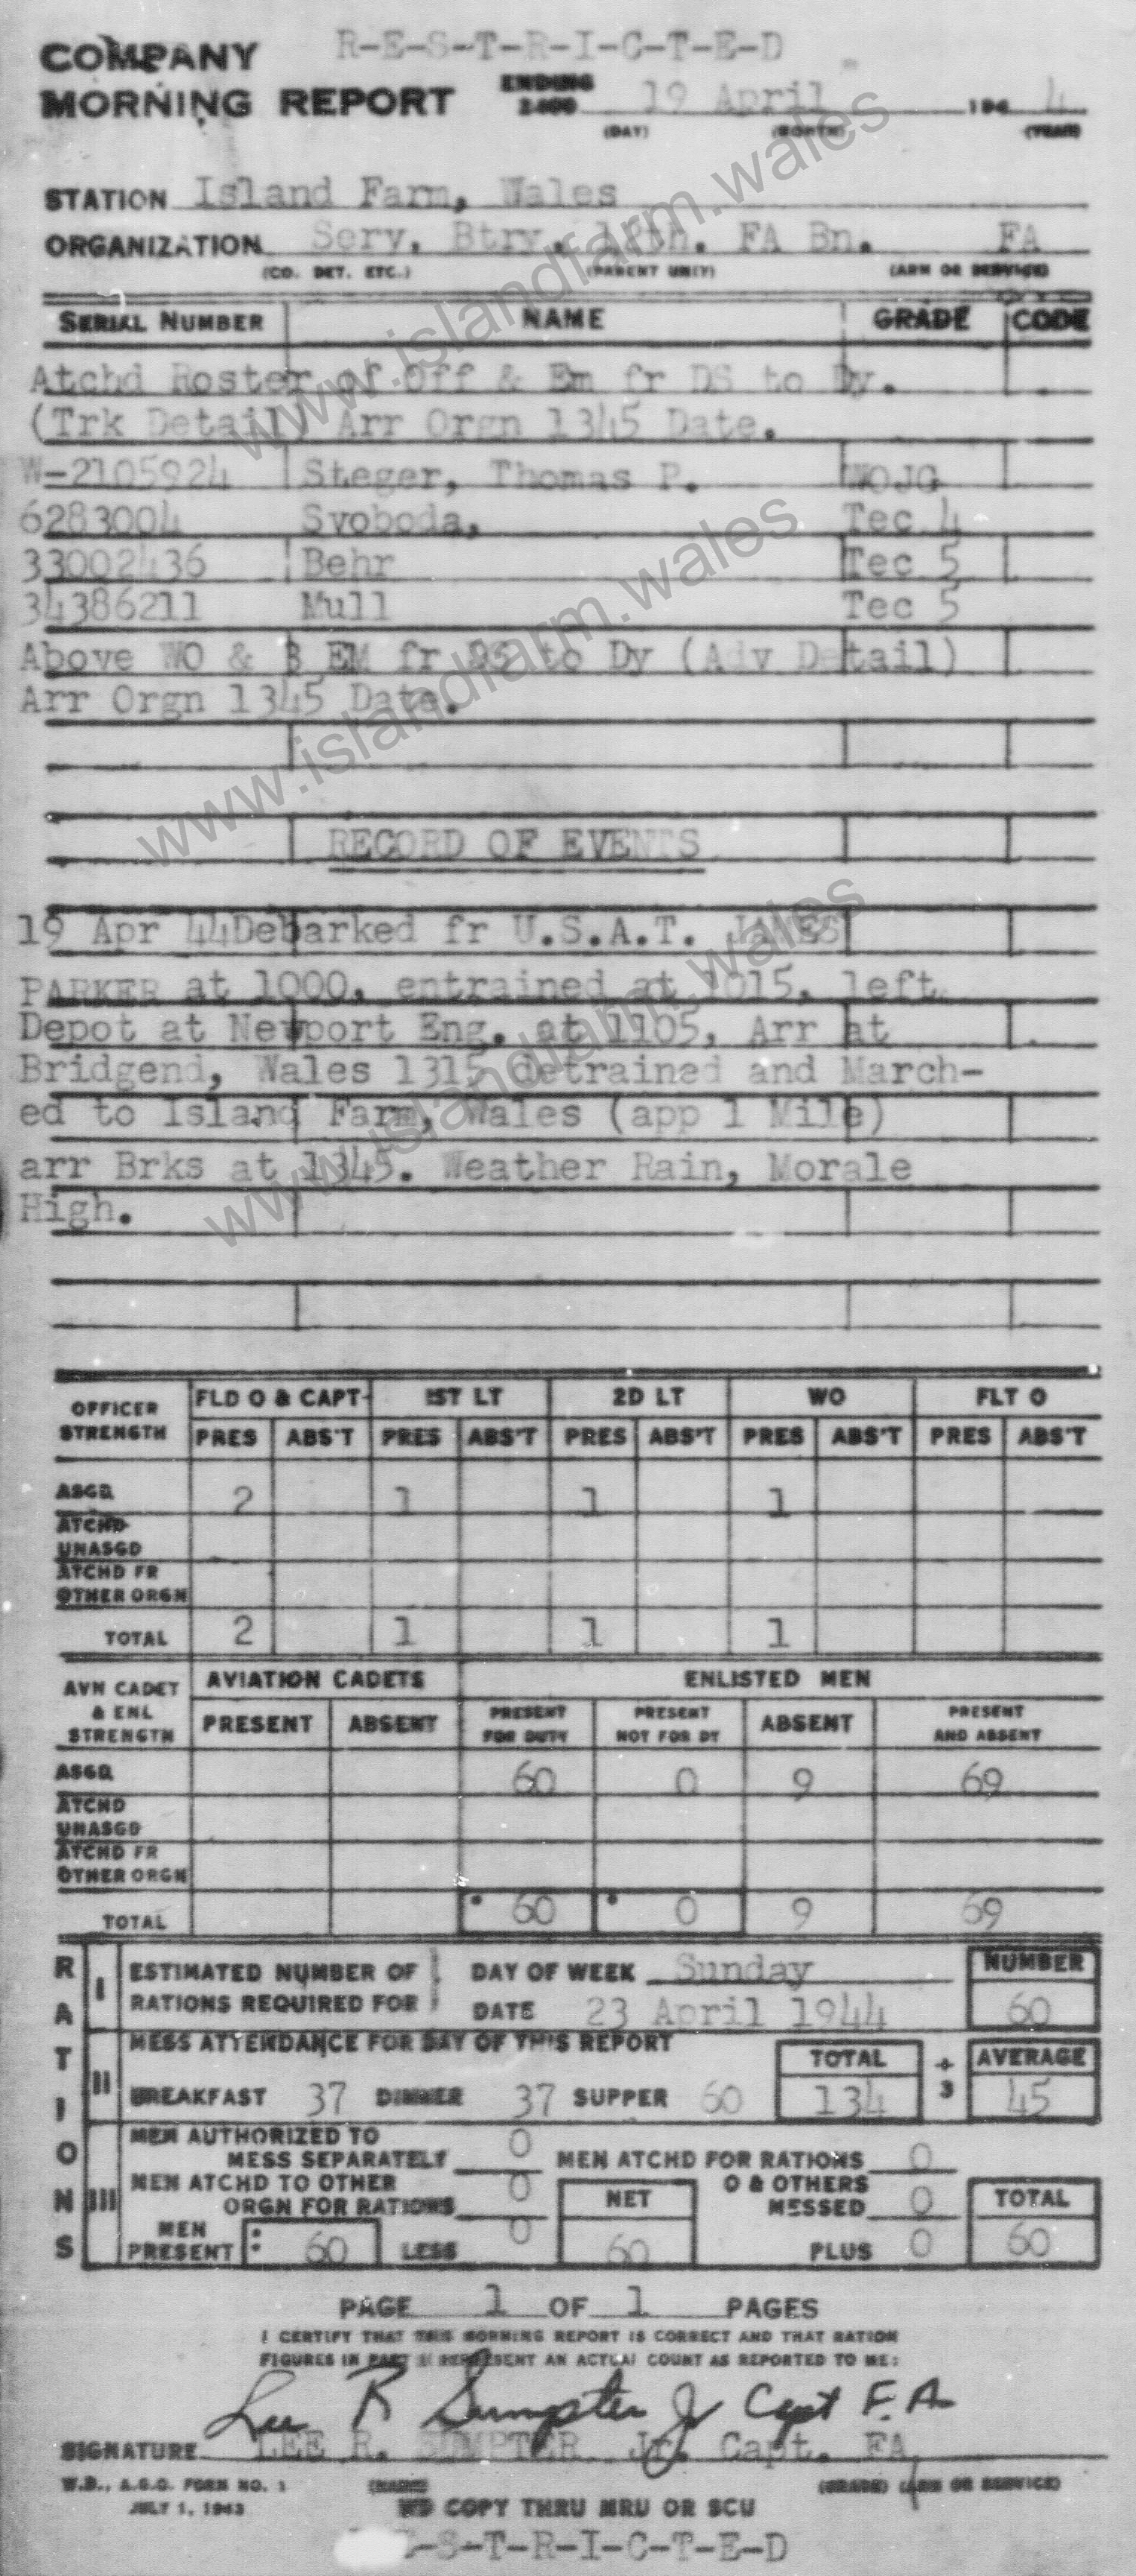 R-E-S-T-R-I-C-T-E-D
COMPANY
MORNING REPORT ENDING 2400 19 April 194 4
(DAY) (MONTH) (YEAR)
STATION Island Farm, Wales
ORGANIZATION Serv. Btry. 12th. FA Bn. FA
(CO. DET. ETC.) (PARENT UNIT) (ARM OR SERVICE)
SERIAL NUMBER NAME GRADE CODE
Atchd Roster of Off & Em fr DS to Dy.
(Trk Detail) Arr Orgn 1345 Date.
W-2105924 Steger, Thomas P. WOJG
6283004 Svoboda, Tec 4
33002436 Behr Tec 5
34386211 Mull Tec 5
Above WO & 3 EM fr DS to Dy (Adv Detail)
Arr Orgn 1345 Date.
RECORD OF EVENTS
19 Apr 44 Debarked fr U.S.A.T. JAMES
PARKER at 1000, entrained at 1015, left
Depot at Newport Eng. at 1105, Arr at
Bridgend, Wales 1315 detrained and March-
ed to Island Farm, Wales (app 1 Mile)
arr Brks at 1345. Weather Rain, Morale
High.
OFFICER STRENGTH FLD O & CAPT 1ST LT 2D LT WO FLT O
PRES ABS'T PRES ABS'T PRES ABS'T PRES ABS'T PRES ABS'T
ASGD 2 1 1 1
ATCHD UNASGD
ATCHD FR OTHER ORGN
TOTAL 2 1 1 1
AVN CADET & ENL STRENGTH AVIATION CADETS ENLISTED MEN
PRESENT ABSENT PRESENT FOR DUTY PRESENT NOT FOR DY ABSENT PRESENT AND ABSENT
ASGD 60 0 9 69
ATCHD UNASGD
ATCHD FR OTHER ORGN
TOTAL 60 0 9 69
RATIONS
I ESTIMATED NUMBER OF RATIONS REQUIRED FOR DAY OF WEEK Sunday NUMBER
DATE 23 April 1944 60
II MESS ATTENDANCE FOR DAY OF THIS REPORT TOTAL ÷ 3 AVERAGE
BREAKFAST 37 DINNER 37 SUPPER 60 134 45
III MEN AUTHORIZED TO MESS SEPARATELY 0 MEN ATCHD FOR RATIONS 0
MEN ATCHD TO OTHER ORGN FOR RATIONS 0 NET O & OTHERS MESSED 0 TOTAL
MEN PRESENT 60 LESS 0 60 PLUS 0 60
PAGE 1 OF 1 PAGES
I CERTIFY THAT THIS MORNING REPORT IS CORRECT AND THAT RATION
FIGURES IN PART II REPRESENT AN ACTUAL COUNT AS REPORTED TO ME:
Lee R Sumpter Jr Capt F.A
SIGNATURE LEE R. SUMPTER Jr. Capt. FA
W.D., A.G.O. FORM NO. 1 (NAME) (GRADE) (ARM OR SERVICE)
JULY 1, 1943
WD COPY THRU MRU OR SCU
-S-T-R-I-C-T-E-D
www.islandfarm.wales
www.islandfarm.wales
www.islandfarm.wales